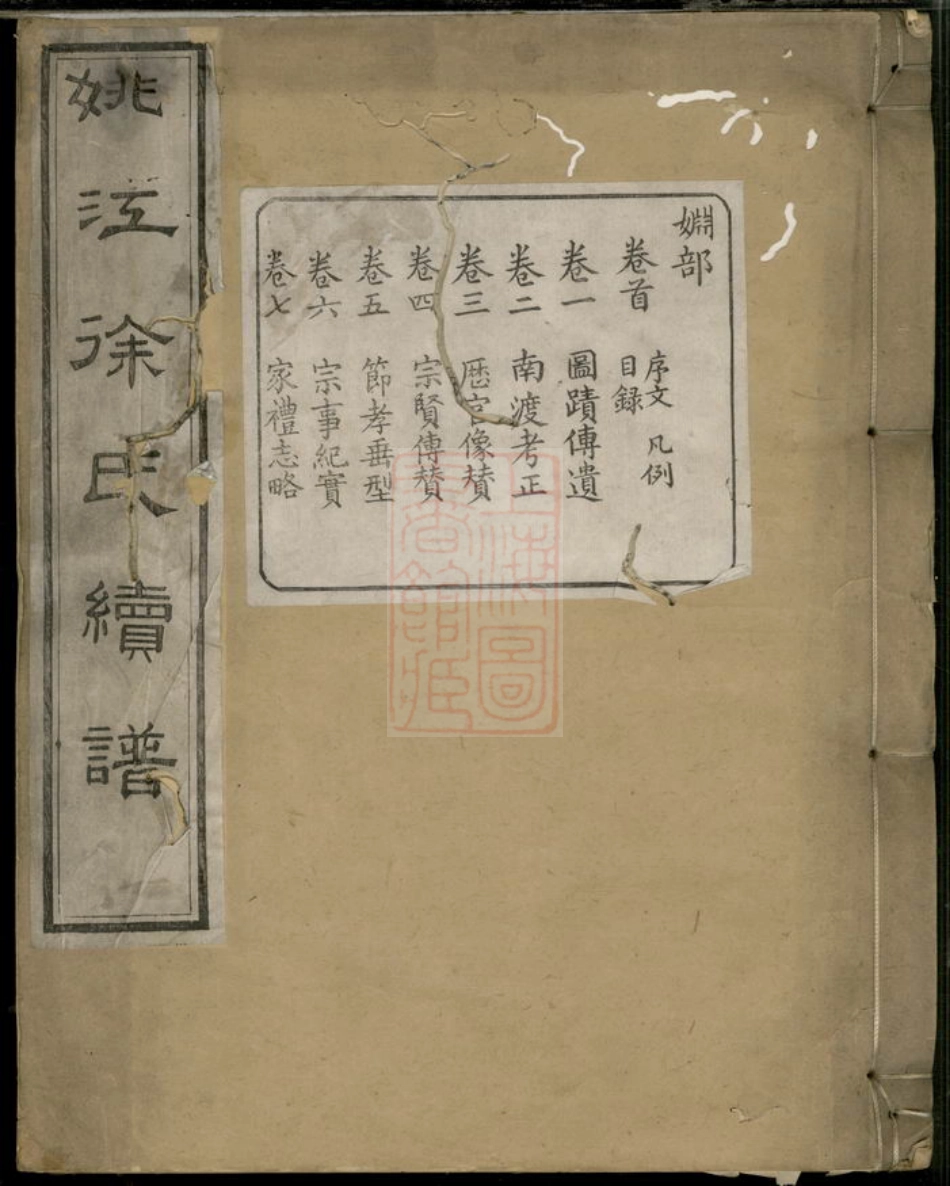 姚江徐氏續譜
婣部
卷首 序文 凡例
目錄
卷一 圖蹟傳遺
卷二 南渡考正
卷三 歷官像赞
卷四 宗賢傳赞
卷五 節孝垂型
卷六 宗事紀實
卷七 家禮志略
上海圖
書館藏